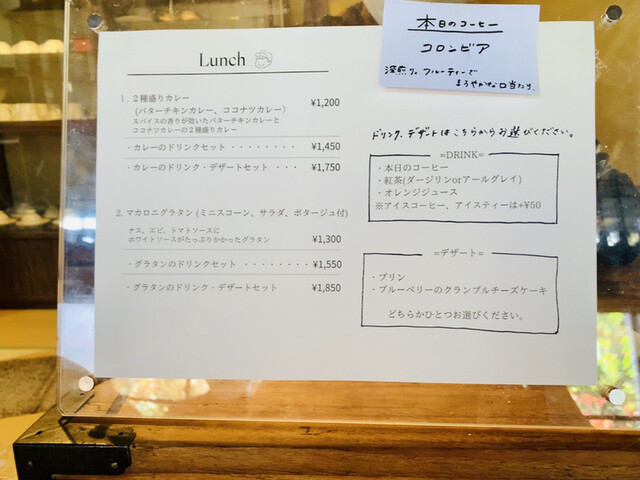 本日のコーヒー
コロンビア
深煎り。フルーティーで
まろやかな口当たり。
Lunch
1. 2種盛りカレー
(バターチキンカレー、ココナツカレー) ¥1,200
スパイスの香りが効いたバターチキンカレーと
ココナツカレーの2種盛りカレー
・カレーのドリンクセット ・・・・・・・・ ¥1,450
・カレーのドリンク・デザートセット ・・・ ¥1,750
2. マカロニグラタン (ミニスコーン、サラダ、ポタージュ付)
ナス、エビ、トマトソースに
ホワイトソースがたっぷりかかったグラタン ¥1,300
・グラタンのドリンクセット ・・・・・・・・ ¥1,550
・グラタンのドリンク・デザートセット ¥1,850
ドリンク、デザートはこちらからお選びください。
=DRINK=
・本日のコーヒー
・紅茶(ダージリンorアールグレイ)
・オレンジジュース
※アイスコーヒー、アイスティーは+¥50
=デザート=
・プリン
・ブルーベリーのクランブルチーズケーキ
どちらかひとつお選びください。